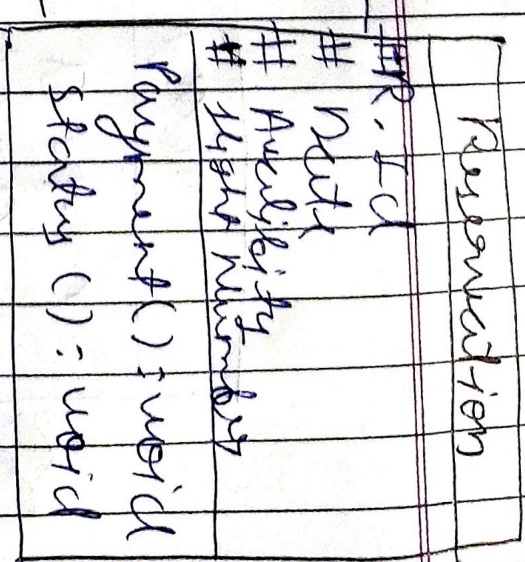 Reservation
#R.Id
# Date
# Avalibity
# flight number
Payment() : void
Status () : void